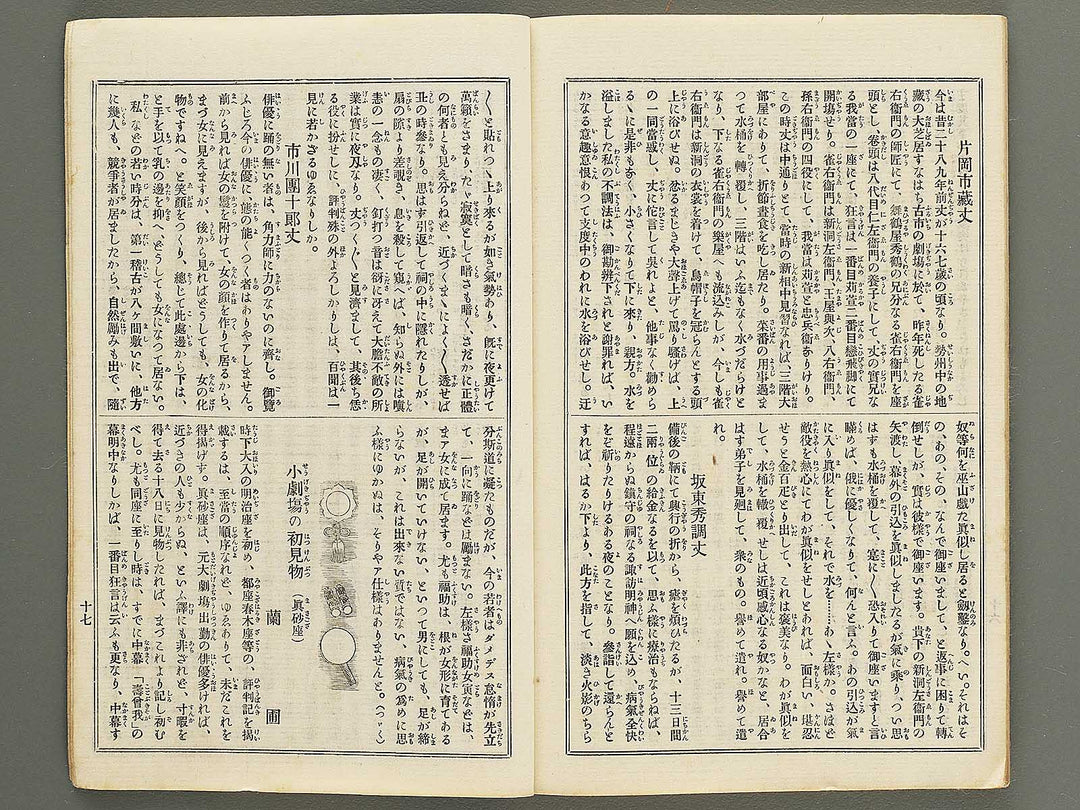 片岡市藏丈
今は昔二十八九年前丈が十六七歳の頃なり。勢州中の地
藏の大芝居すなはち古市の劇塲に於て、昨年死したる雀
右衞門の師匠にて、舞鶴屋秀鶴の兄分なる雀右衞門を座
頭とし、卷頭は八代目仁左衞門の養子にして、丈の實兄な
る我當の一座にて、狂言は一番目苅萱二番目戀飛脚にて
開塲せり。雀右衞門は新洞左衞門、玉屋與次、八右衞門、
孫右衞門の四役にして、我當は苅萱と忠兵衞なりけり。
この時丈は中通りとて、當時の新相中見習なれば、三階大
部屋にありて、折節晝食を吃し居たり。菜番の用事過ま
つて水桶を轉覆し、三階はいふ迄もなく水づだらけと
なり、下なる雀右衞門の樂屋へも流込みしが、今しも雀
右衞門は新洞の衣裳を着けて、烏帽子を冠らんとする頭
上に浴びせぬ。忽るまじきや大聲上げて罵り騷げば、上
の一同當惑し、丈に佗言して吳れよと、他事なく勸めら
るゝに是非もなく、小さくなりて下に來り、親方。水を
溢しました私の不調法は、御勘辨下されと謝罪れば、い
かなる意趣意恨わつて支度中のわれに水を浴びせし。迂
奴等何を巫山戲た眞似し居ると劔鑿なり。へい。それはそ
の、あの、その、なんで御座いまして、と返事に困りて轉
倒せしが、實は彼樣で御座います。貴下の新洞左衞門の
矢渡し、幕外の引込を眞似しましたるが氣に乘り、つい思
はずも水桶を覆して、塞に〱恐入りて御座いますと言
瞞めば、俄に優しくなりて、何んと言ふ。あの引込が氣
に入り眞似をして、それで水を……あ、左樣か。さほど
敵役を熱心にてわが眞似をせしとあれば、面白い、堪忍
せうと金百疋とり出して、これは褒美なり。わが眞似を
して、水桶を轉覆せしは近頃感心なる奴かなと、居合
はす弟子を見廻して、衆のもの。譽めて遣れ。譽めて遣
れ。
坂東秀調丈
備後の鞆にて興行の折から、瘧を煩ひたるが、十三日間
二兩一位の給金なるを以て、思ふ樣に療治もならねば、
程遠からぬ鎭守の祠なる諏訪明神へ願を込め、病氣全快
をぞ祈りたりけるある夜のことなり。參詣して還らんと
すれば、はるか下より、此方を指して、淡き火影のちら
〱と貼れつゝ上り來るが如き氣勢あり、旣に夜更けて
萬籟をさまりつた、寂寞として暗さも暗く、さだかに正體
の何者とも見え分らねど、近づくまゝによく〱透せば
丑の時參なり。思はず引返して祠の中に隱れたりしが、
扇の隙より差覗き、息を殺して窺へば、知らぬ外には嗔
恚の一念もの凄く、釘打つ音は谺に冴えて大膽不敵の所
業は實に夜叉なりき。丈つく〲と見濟まして、其後ち恁
る役に扮せしに、評判殊の外よろしかりしは、百聞は一
見に若かざるゆゑなりしか。
市川團十郞丈
俳優に踊の無い者は、角力師に力のないのに齊し。御覽
ふじろ今の俳優に態の能くつく者はありやアしません。
前から見れば女の鬘を附けて、女の顏を作りて居るから、
まづ女に見えますが、後から見ればどうしても、女の化
物ですねへ。と笑顏をつくり、總じて此處邊から下は、
と手を以て乳の邊を抑へ、どうしても女になつて居ない。
私などの若い時分は、第一稽古が八ケ間敷いに、他方
に幾人も、競爭者が居ましたたから、自然勵みも出で、隨
分斯道に凝たものだが、今の若者はダメデス怠惰が先立
て、一向に踊などは屬まない。左樣さ福助女寅などは、
まア女に成て居ます。尤も福助は、根が女形に育てある
が、足が開いていけない、といつて男にしても、足が締
らないが、これは出來ない質ではない、病氣の爲めに思
ふ樣にゆかぬは、そりやア仕樣はありませんと。(つゞく)
小劇塲の初見物(眞砂座)
蘭 圃
時下大入の明治座を初め、都座春木座等の、評判記を揭
載するは、至當の順序なれど、ゆゑありて、未だこれを
得揭げす。眞砂座は、元大劇塲出勤の俳優多ければ、
近づきの人も少からぬ、といふ譯にも非されど、寸暇を
得て去る十八日に見物したれば、まづこれより記し初む
べし。尤も同座に至りし時は、すでに中幕「壽曾我」の
幕明中なりしかば、一番目狂言は云ふも更なり、中幕す
十七